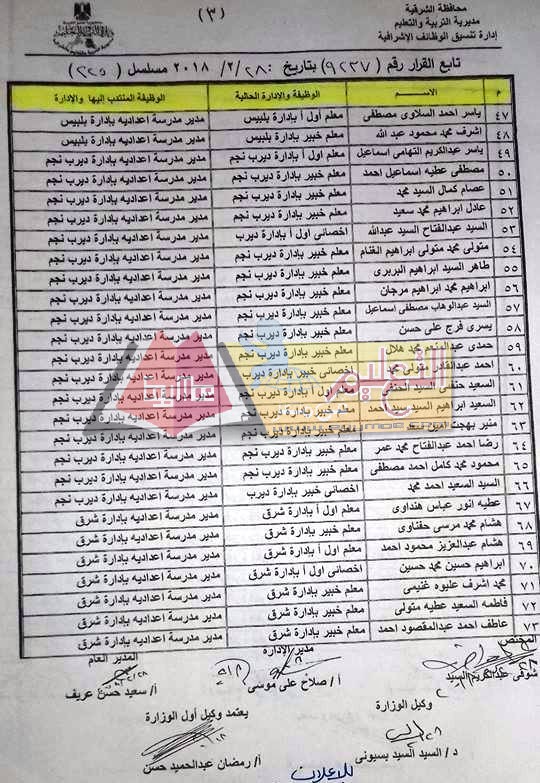 محافظة الشرقية
مديرية التربية والتعليم
إدارة تنسيق الوظائف الإشرافية
(٣)
تابع القرار رقم (٩٢٣٧) بتاريخ ٢٨ / ٢ / ٢٠١٨ مسلسل (٢٢٥)
م الاســـم الوظيفة والإدارة الحالية الوظيفة المنتدب إليها والإدارة
٤٧ ياسر احمد السلاوى مصطفى معلم أول أ بإدارة بلبيس مدير مدرسة اعداديه بإدارة بلبيس
٤٨ اشرف محمد محمود عبد الله معلم خبير بإدارة بلبيس مدير مدرسة اعداديه بإدارة بلبيس
٤٩ ياسر عبدالكريم التهامى اسماعيل معلم أول أ بإدارة ديرب نجم مدير مدرسة اعداديه بإدارة ديرب نجم
٥٠ مصطفى عطيه اسماعيل احمد معلم خبير بإدارة ديرب نجم مدير مدرسة اعداديه بإدارة ديرب نجم
٥١ عصام كمال السيد محمد معلم خبير بإدارة ديرب نجم مدير مدرسة اعداديه بإدارة ديرب نجم
٥٢ عادل ابراهيم محمد سعيد معلم خبير بإدارة ديرب نجم مدير مدرسة اعداديه بإدارة ديرب نجم
٥٣ السيد عبدالفتاح السيد عبدالله اخصائى اول أ بإدارة ديرب مدير مدرسة اعداديه بإدارة ديرب نجم
٥٤ متولى محمد متولى ابراهيم الغنام معلم خبير بإدارة ديرب نجم مدير مدرسة اعداديه بإدارة ديرب نجم
٥٥ طاهر السيد ابراهيم البربرى معلم خبير بإدارة ديرب نجم مدير مدرسة اعداديه بإدارة ديرب نجم
٥٦ ابراهيم محمد ابراهيم مرجان معلم خبير بإدارة ديرب نجم مدير مدرسة اعداديه بإدارة ديرب نجم
٥٧ السيد عبدالوهاب مصطفى اسماعيل معلم خبير بإدارة ديرب نجم مدير مدرسة اعداديه بإدارة ديرب نجم
٥٨ يسرى فرج على حسن معلم خبير بإدارة ديرب نجم مدير مدرسة اعداديه بإدارة ديرب نجم
٥٩ حمدى عبدالمنعم محمد هلال معلم خبير بإدارة ديرب نجم مدير مدرسة اعداديه بإدارة ديرب نجم
٦٠ احمد عبدالقادر متولى محمد اخصائى خبير بإدارة ديرب مدير مدرسة اعداديه بإدارة ديرب نجم
٦١ السعيد حنفى السيد الحنفى معلم أول أ بإدارة ديرب نجم مدير مدرسة اعداديه بإدارة ديرب نجم
٦٢ السعيد ابراهيم السيد سيد احمد معلم خبير بإدارة ديرب نجم مدير مدرسة اعداديه بإدارة ديرب نجم
٦٣ منير بهجت امين معلم خبير بإدارة ديرب نجم مدير مدرسة اعداديه بإدارة ديرب نجم
٦٤ رضا احمد عبدالفتاح محمد عمر معلم خبير بإدارة ديرب نجم مدير مدرسة اعداديه بإدارة ديرب نجم
٦٥ محمود محمد كامل احمد مصطفى معلم خبير بإدارة ديرب نجم مدير مدرسة اعداديه بإدارة ديرب نجم
٦٦ السيد السعيد احمد محمد اخصائى خبير بإدارة ديرب مدير مدرسة اعداديه بإدارة ديرب نجم
٦٧ عطيه انور عباس هنداوى معلم اول أ بإدارة شرق مدير مدرسة اعداديه بإدارة شرق
٦٨ هشام محمد مرسى حفناوى معلم خبير بإدارة شرق مدير مدرسة اعداديه بإدارة شرق
٦٩ هشام عبدالعزيز محمود احمد معلم أول أ بإدارة شرق مدير مدرسة اعداديه بإدارة شرق
٧٠ ابراهيم حسين محمد حسين اخصائى اول أ بإدارة شرق مدير مدرسة اعداديه بإدارة شرق
٧١ محمد اشرف عليوه غنيمى معلم خبير بإدارة شرق مدير مدرسة اعداديه بإدارة شرق
٧٢ فاطمه السعيد عطيه متولى معلم خبير بإدارة شرق مدير مدرسة اعداديه بإدارة شرق
٧٣ عاطف احمد عبدالمقصود احمد معلم خبير بإدارة شرق مدير مدرسة اعداديه بإدارة شرق
المختص مدير الإدارة المدير العام
شوقى عبدالكريم السيد أ/ صلاح على موسى أ/ سعيد حسن عريف
وكيل الوزارة يعتمد وكيل أول الوزارة
د/ السيد السيد بسيونى أ/ رمضان عبدالحميد حسن
للإعلان